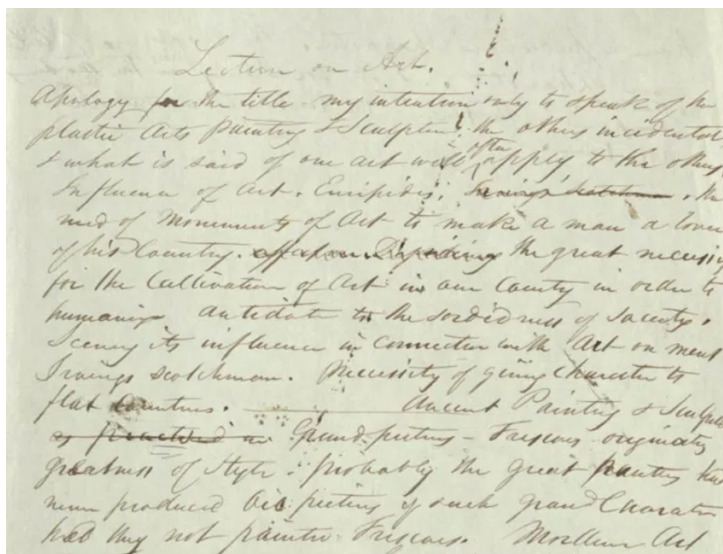 Lecture on Art.
Apology for the title my intention only to speak of the
plastic Arts Painting & Sculpture the others incidental
& what is said of one art will often apply to the other
Influence of Art. Euripides. Irvings Scotchman. the
need of Monuments of Art to make a man a lover
of his Country. the great necessity
for the Cultivation of Art in our County in order to
humanize antidote to the sordidness of Society.
Scenery its influence in connection with Art on men
Irvings scotchman. Necessity of giving Character to
flat Countries. Ancient Painting & Sculpture
as practised in Grand picture - Frescoes originates
greatness of style. probably the great Painters had
never produced pictures of such grand Character
had they not painted Frescoes. Modern Art